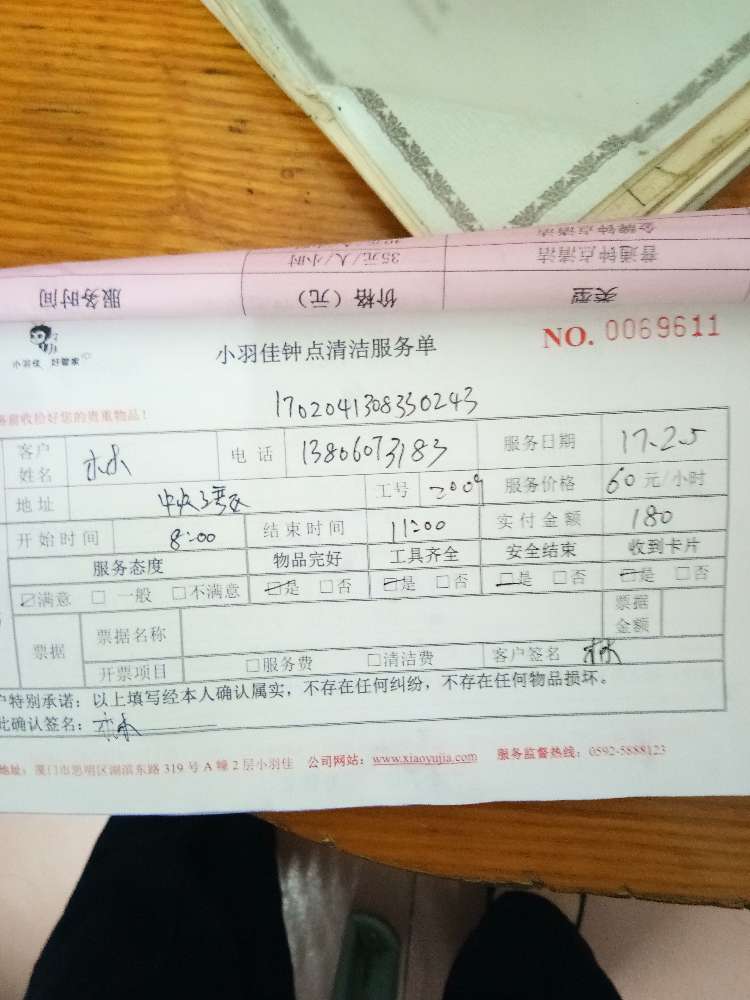 金牌钟点清洁
普通钟点清洁 35元/人/小时
类型 价格（元） 服务时间
小羽佳 好管家
小羽佳钟点清洁服务单 NO. 0069611
收拾好您的贵重物品！
客户姓名 林 电话 13806073183 服务日期 17.2.5
地址 工号 2009 服务价格 60元/小时
开始时间 8:00 结束时间 11:00 实付金额 180
服务态度 物品完好 工具齐全 安全结束 收到卡片
☑满意 □一般 □不满意 ☑是 □否 ☑是 □否 ☑是 □否 ☑是 □否
票据 票据名称 票据金额
开票项目 □服务费 □清洁费 客户签名 林
特别承诺：以上填写经本人确认属实，不存在任何纠纷，不存在任何物品损坏。
此确认签名：林
地址：厦门市思明区湖滨东路319号A幢2层小羽佳 公司网站：www.xiaoyujia.com 服务监督热线：0592-5888123